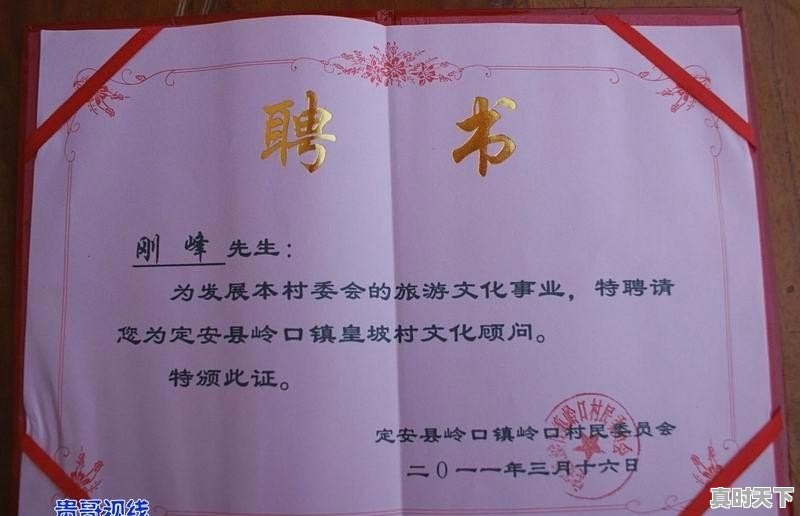 聘 书
刚 峰 先生：
为发展本村委会的旅游文化事业，特聘请
您为定安县岭口镇皇坡村文化顾问。
特颁此证。
定安县岭口镇岭口村民委员会
二0一一年三月十六日
贵哥视线
真时天下